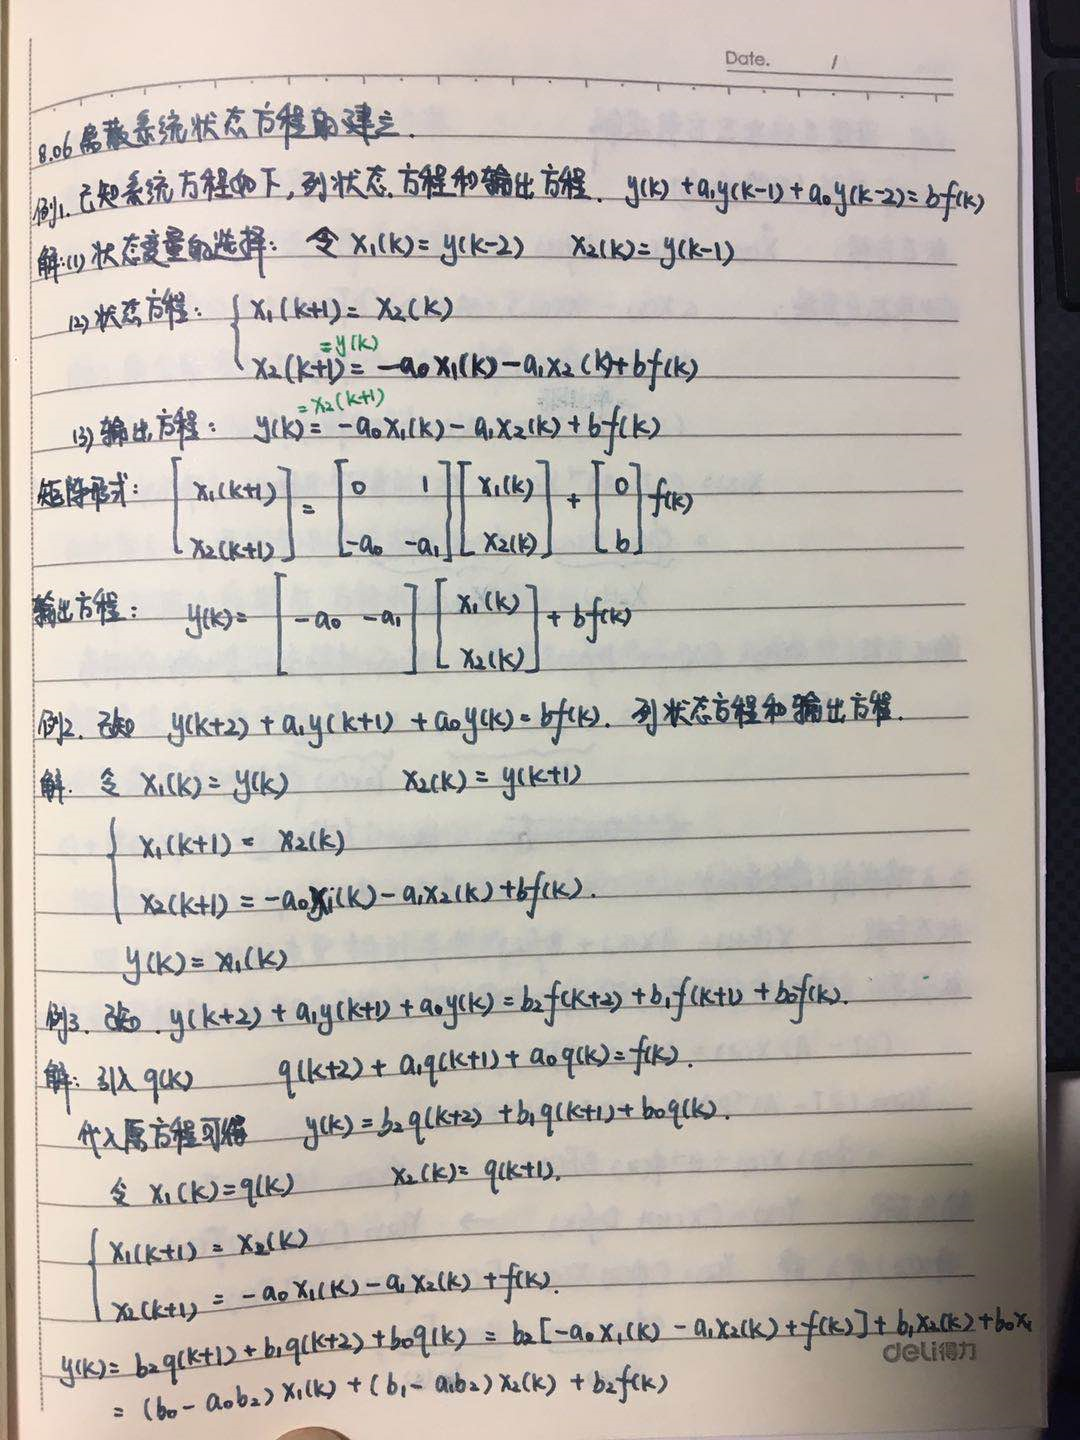 Date. /
8.06 离散系统状态方程的建立.
例1. 已知系统方程如下,列状态方程和输出方程. y(k)+a₁y(k-1)+a₀y(k-2)=bf(k)
解:(1)状态变量的选择: 令 x₁(k)=y(k-2) x₂(k)=y(k-1)
(2)状态方程: { x₁(k+1)=x₂(k)
=y(k)
x₂(k+1)=-a₀x₁(k)-a₁x₂(k)+bf(k)
=x₂(k+1)
(3)输出方程: y(k)=-a₀x₁(k)-a₁x₂(k)+bf(k)
矩阵形式: [x₁(k+1) x₂(k+1)] = [0 1 -a₀ -a₁] [x₁(k) x₂(k)] + [0 b] f(k)
输出方程: y(k)= [-a₀ -a₁] [x₁(k) x₂(k)] + bf(k)
例2. 已知 y(k+2)+a₁y(k+1)+a₀y(k)=bf(k). 列状态方程和输出方程.
解. 令 x₁(k)=y(k) x₂(k)=y(k+1)
{ x₁(k+1)=x₂(k)
x₂(k+1)=-a₀x₁(k)-a₁x₂(k)+bf(k).
y(k)=x₁(k)
例3. 已知. y(k+2)+a₁y(k+1)+a₀y(k)=b₂f(k+2)+b₁f(k+1)+b₀f(k).
解: 引入q(k) q(k+2)+a₁q(k+1)+a₀q(k)=f(k).
代入原方程可得 y(k)=b₂q(k+2)+b₁q(k+1)+b₀q(k).
令 x₁(k)=q(k) x₂(k)=q(k+1).
{ x₁(k+1)=x₂(k)
x₂(k+1)=-a₀x₁(k)-a₁x₂(k)+f(k).
y(k)=b₂q(k+1)+b₁q(k+2)+b₀q(k)=b₂[-a₀x₁(k)-a₁x₂(k)+f(k)]+b₁x₂(k)+b₀x₁
deli得力
=(b₀-a₀b₂)x₁(k)+(b₁-a₁b₂)x₂(k)+b₂f(k)